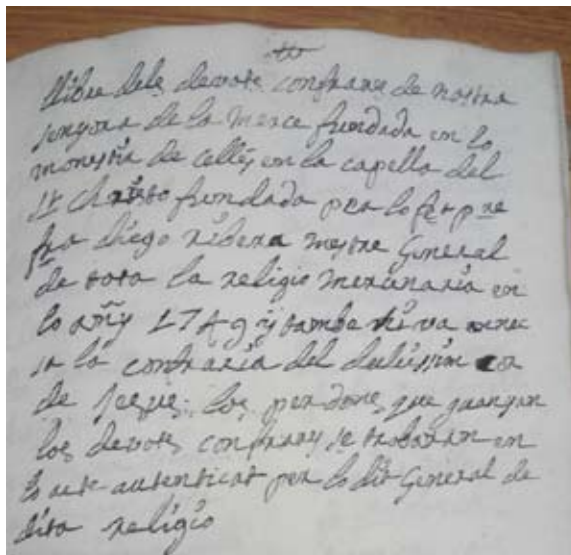 llibre dels devots confrares de nostra
senyora de la merce fundada en lo
monestir de cellers en la capella del
St Christo fundada per lo
fra Diego ribera mestre General
de tota la religio mercenaria en
lo añy 1749 y tambe hi va
la confraria del dulcissim cor
de Jesus: los perdons que guanyan
los devots confrares se trobaran en
lo acte autenticat per lo dit General de
dita religio